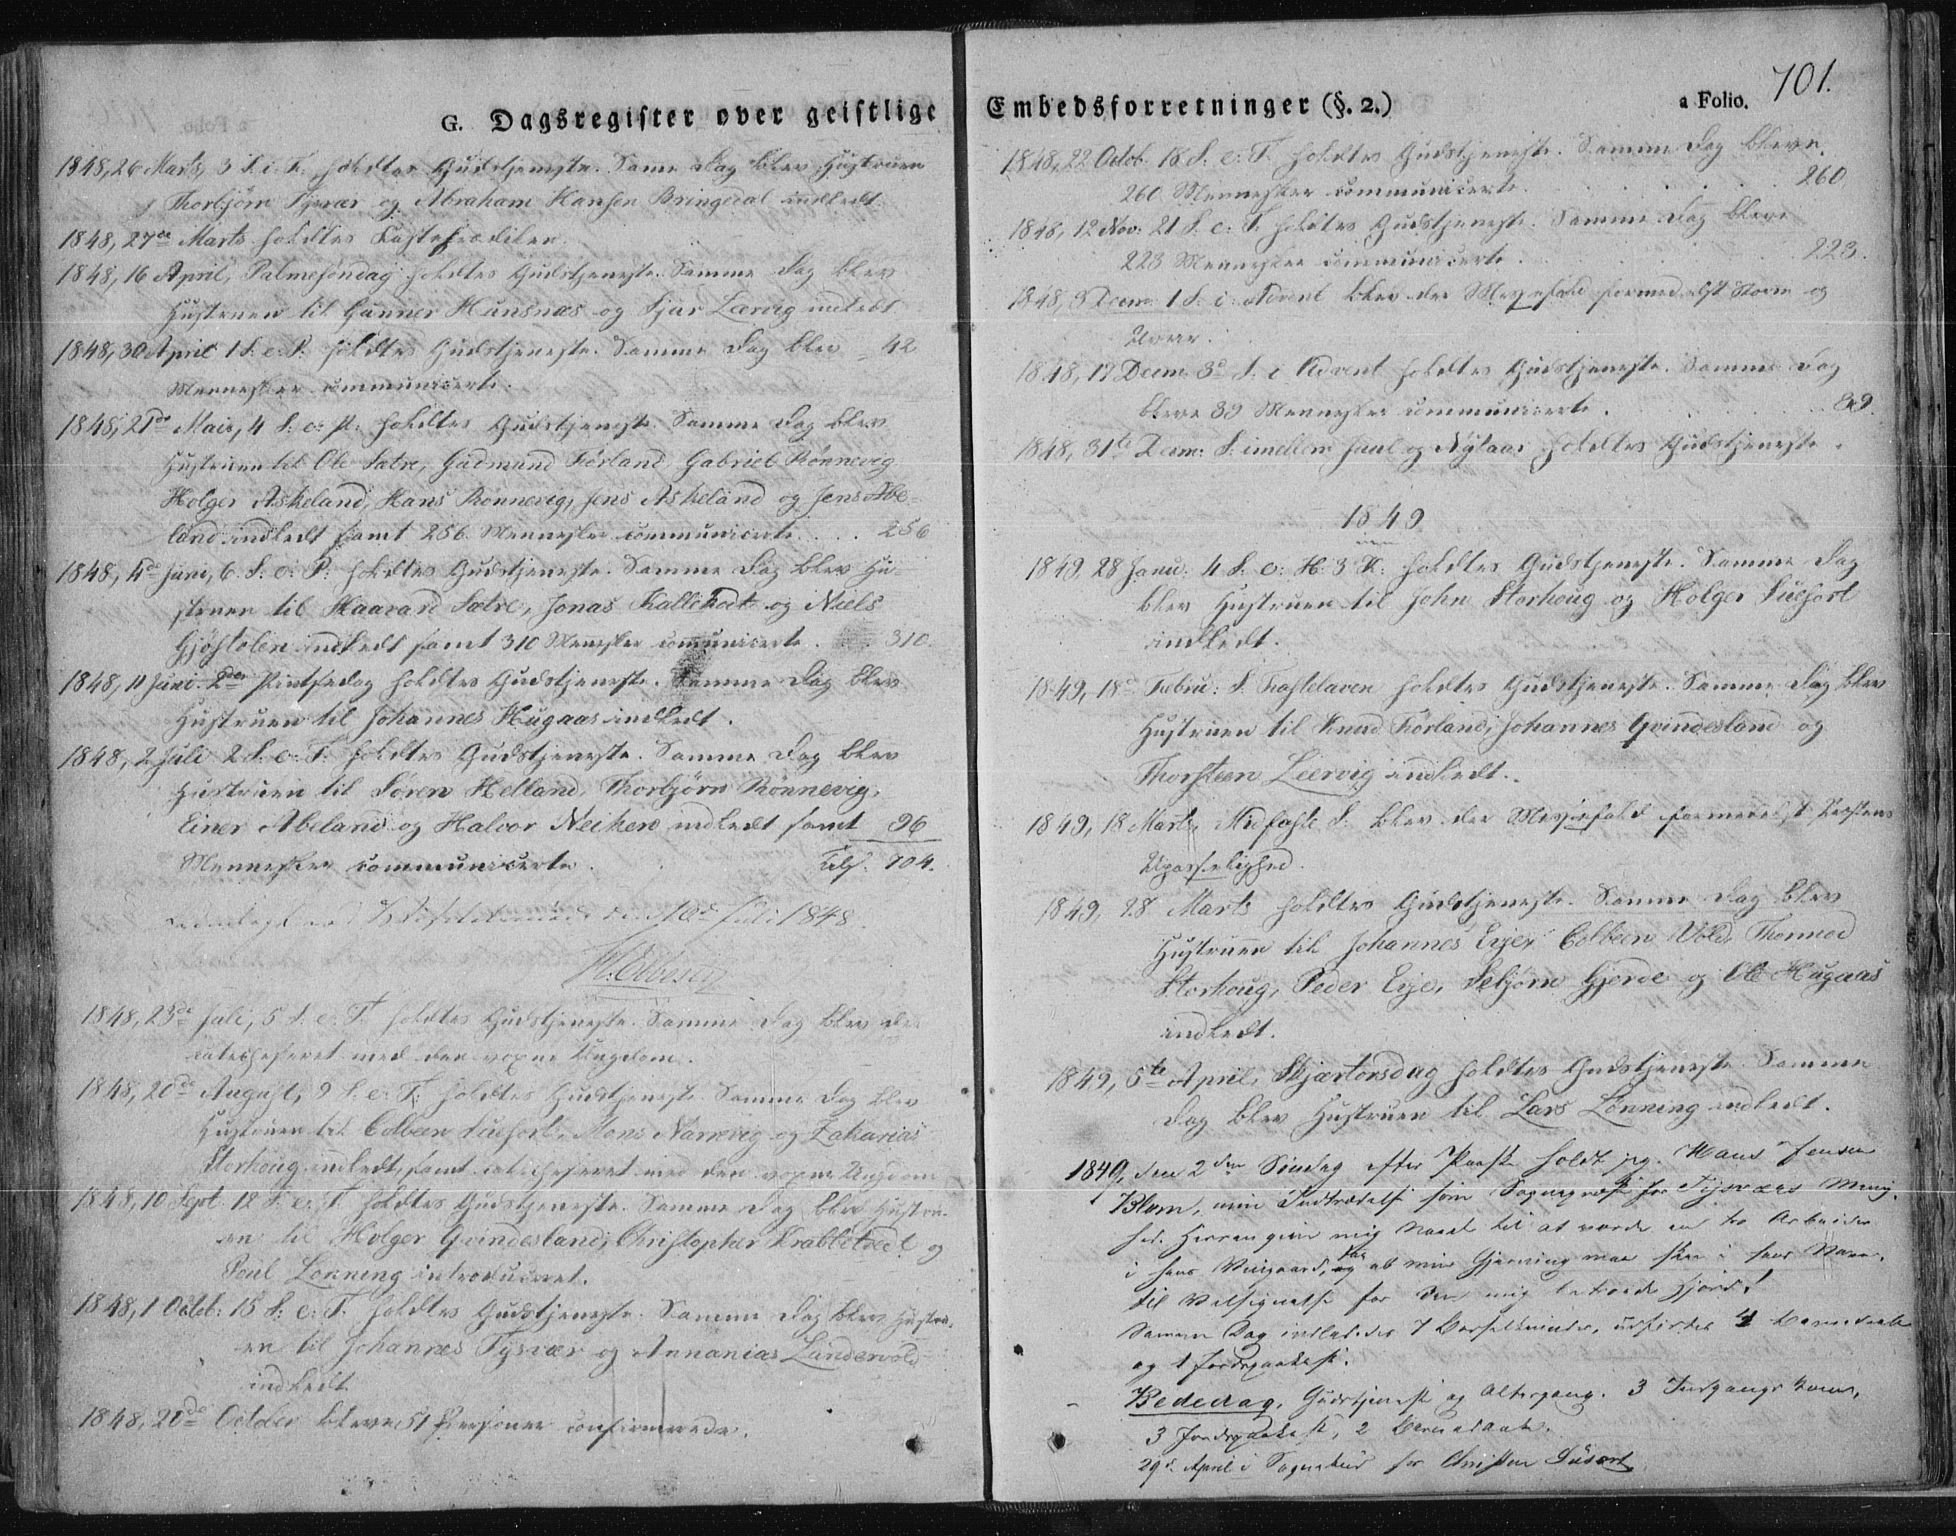 G. Dagsregister over geistlige
1848, 26 Marts, 3 S. i F. holdtes Gudstjeneste. Same Dag blev Hustruen
Thorbjörn Tysvær og Abraham Hansen Bringedal indledt.
1848, 27de Marts holdtes Fasteprædiken.
1848, 16 April, Palmesøndag holdtes Gudstjeneste. Samme Dag blev
Hustruen til Gunner Hunsnæs og Sjur Lærvig indledt.
1848, 30 April 1 S. e. P. holdtes Gudstjeneste. Samme Dag blev 42
Mennesker communicerte.
1848, 21de Mai, 4 S. e. P. holdtes Gudstjeneste. Samme Dag blev
Hustruen til Ole Sætre, Gudmund Förland, Gabriel Rönnevig
Holger Askeland, Hans Rönnevig, Jens Askeland og Jens Abe-
land indledt samt 256 Mennesker communicerte . . . 256
1848, 4de Juni, 6 S. e. P. holdtes Gudstjeneste. Samme Dag blev Hu-
struen til Haavard Sætre, Jonas Kallekodt og Niels
indledt samt 310 Mennesker communicerte . . 310.
1848, 11 Juni 2den Pintsedag holdtes Gudstjeneste. Samme Dag blev
Hustruen til Johannes Hugaas indledt.
1848, 2 Juli 2 S. e. T. holdtes Gudstjeneste. Samme Dag blev
Hustruen til Sören Helland, Thorbjörn Rönnevig,
Einer Abeland og Halvor Neiken indledt samt 96
Mennesker communicerte. 704.
Juli 1848.
1848, 23de Juli, 5 S. e. T. holdtes Gudstjeneste. Samme Dag blev der
catechiseret med den voxne Ungdom.
1848, 20de August, 9 S. e. T. holdtes Gudstjeneste. Samme Dag blev
Hustruen til Colbeen Suefort, Mons Narrevig og Zakarias
Storhoug indledt, samt catechiseret med den voxne Ungdom
1848, 10 Sept 12 S. e. T. holdtes Gudstjeneste. Samme Dag blev Hustru-
en til Holger Qvindesland, Christopher Krabbetvedt og
Poul Lönning introduceret.
1848, 1 Octob: 15 S. e. T. holdtes Gudstjeneste. Samme Dag blev Hustru-
en til Johannes Tysvær og Annanias Lundervold
indledt.
1848, 20de October bleve 51 Personer confirmerede.
Embedsforretninger (§. 2.)
a Folio. 701.
1848, 22 Octob. 18 S. e. T. holdtes Gudstjeneste. Samme Dag bleve
260 Mennesker communicerte. 260.
1848, 12 Nov: 21 S. e. T. holdtes Gudstjeneste. Samme Dag bleve
223 Mennesker communicerte . 223.
1848, 3 Decm: 1 S. i Advent blev der Messefald formedelst Storm og
1848, 17 Decm. 3d S. i Advent holdtes Gudstjeneste. Samme Dag
bleve 39 Mennesker communicerte.
1848, 31te Decm: S. imellem Juul og Nytaar holdtes Gudstjeneste.
1849
1849, 28 Janu: 4 S. e. H. 3 K. holdtes Gudstjeneste. Samme Dag
blev Hustruen til John Storhoug og Holger Suefort
indledt.
1849, 18de Febru: S. Fastelaven holdtes Gudstjeneste. Samme Dag blev
Hustruen til Knud Förland, Johannes Qvindesland og
Thorsteen Leervig indledt.
1849, 18 Marts, Midfaste S. blev der Messefald formedelst Præstens
Upasselighed.
1849, 28 Marts holdtes Gudstjeneste. Samme Dag blev
Hustruen til Johannes Erje, Colbeen Vold, Thormod
Storhoug, Peder Erje, Sebjørn Gjerde og Ole Hugaas
indledt.
1849, 5te April, Skjærtorsdag holdtes Gudstjeneste. Samme
Dag blev Hustruen til Lars Lönning indledt.
1849, den 2den Söndag efter Paaske holdt jeg, Hans Jensen
Blom, min Indtrædelse som Sognepræst for Tysværs Menig-
hed. Herren give mig Naade til at vorde en tro Arbeider
i hans Viingaard, og at min Gjerning maa skee i hans Navn,
til Velsignelse for den mig betroede Hjord!
Samme Dag indlededes 7 Barselkvinder, udførtes 4 Barnedaab
og 1 Jordpaakast.
Bededag, Gudstjeneste og Altergang. 3 Indgangskoner,
3 Jordpaakast, 2 Barnedaab.
29de April i Sognebud for Christen Suefort